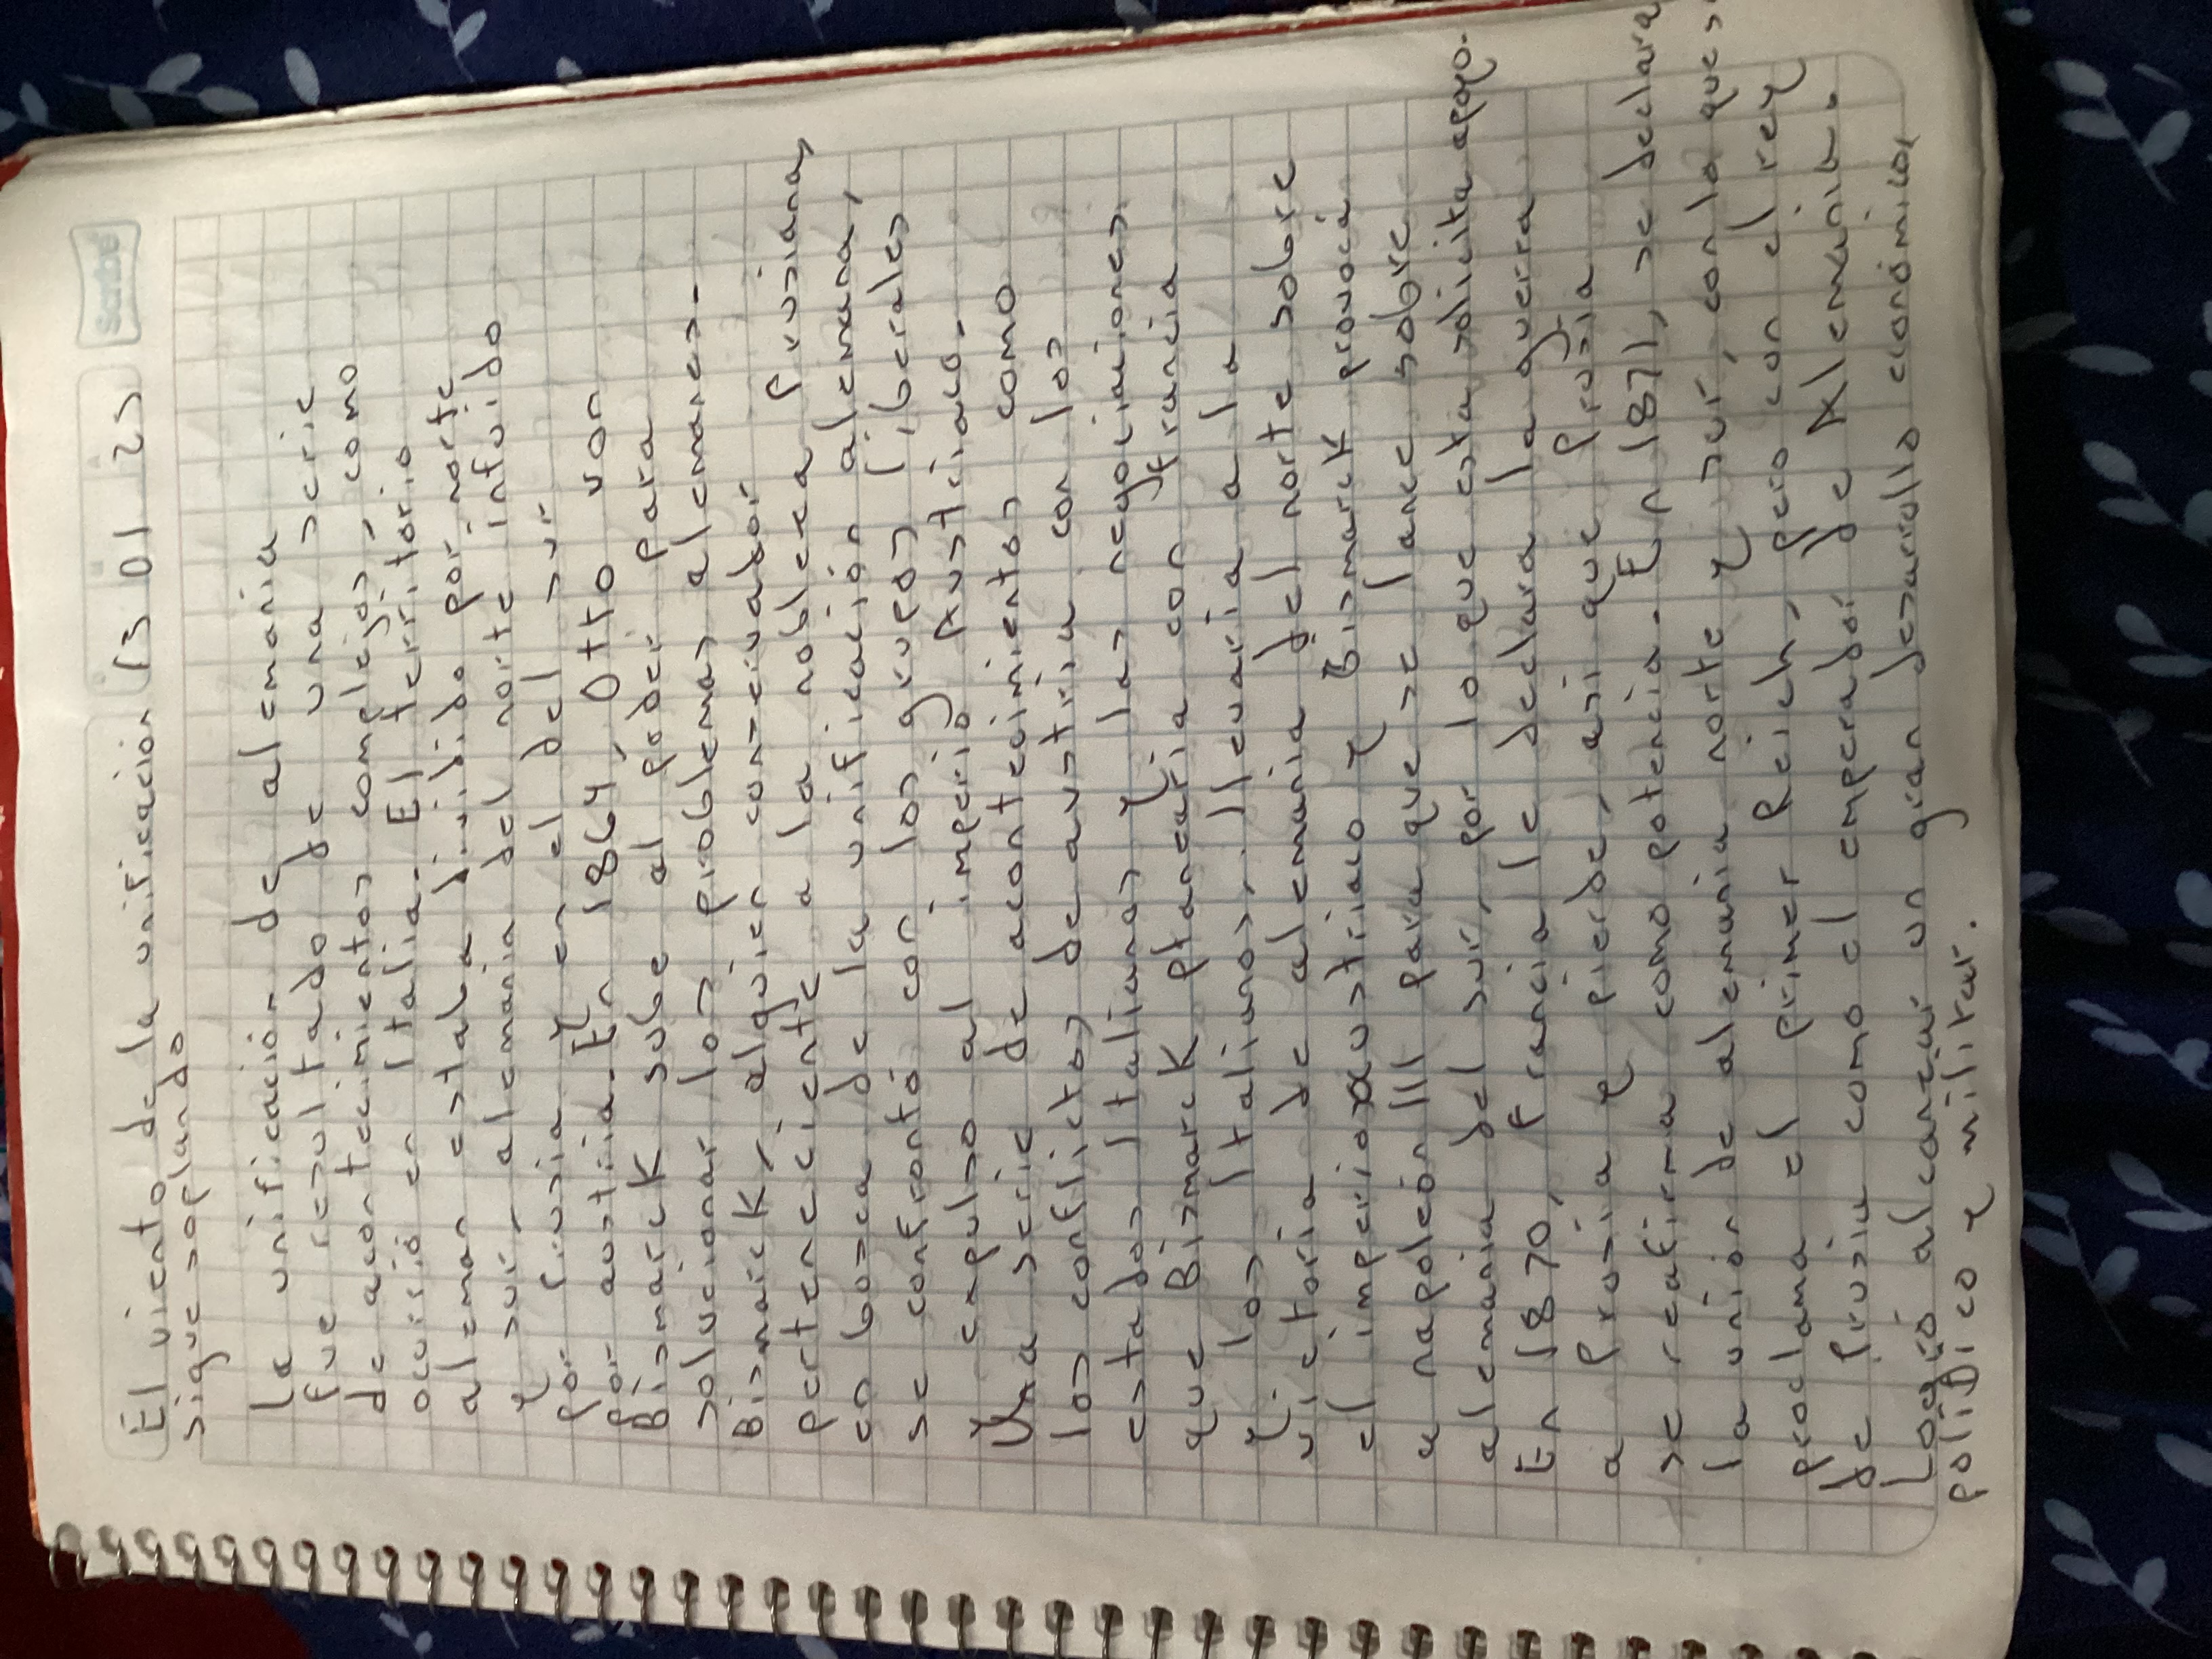 Scribe
El viento de la unificacion 13 01 23
sigue soplando
La unificación de alemania
fue resultado de una serie
de acontecimientos complejos, como
ocurrió en Italia. El territorio
aleman estaba dividido por norte
y sur, alemania del norte infuido
por Prusia y en el del sur
por austria. En 1864, Otto von
Bismarck sube al poder para
solucionar los problemas alemanes.
Bismarck, alguien conservador
perteneciente a la nobleza Prusiana,
en busca de la unificación alemana,
se confrontó con los grupos liberales
y expulso al imperio Austriaco.
Una serie de acontecimientos como
los conflictos de austria con los
estados Italianos y las negociaciones
que Bismarck planearia con francia
y los Italianos, llevaria a la
victoria de alemania del norte sobre
el imperio austriaco y Bismarck provocá
a napoleón III para que se lance sobre
alemania del sur, por lo que esta solicita apoyo.
En 1870, Francia le declara la guerra
a Prusia y pierde, asi que Prusia
se reafirma como potencia. En 1871, se declara
la unión de alemania norte y sur, con lo que se
proclama el primer Reich, pero con el rey
de Prusia como el emperador de Alemania.
Logró alcanzar un gran desarrollo económico,
poliDico y militar.